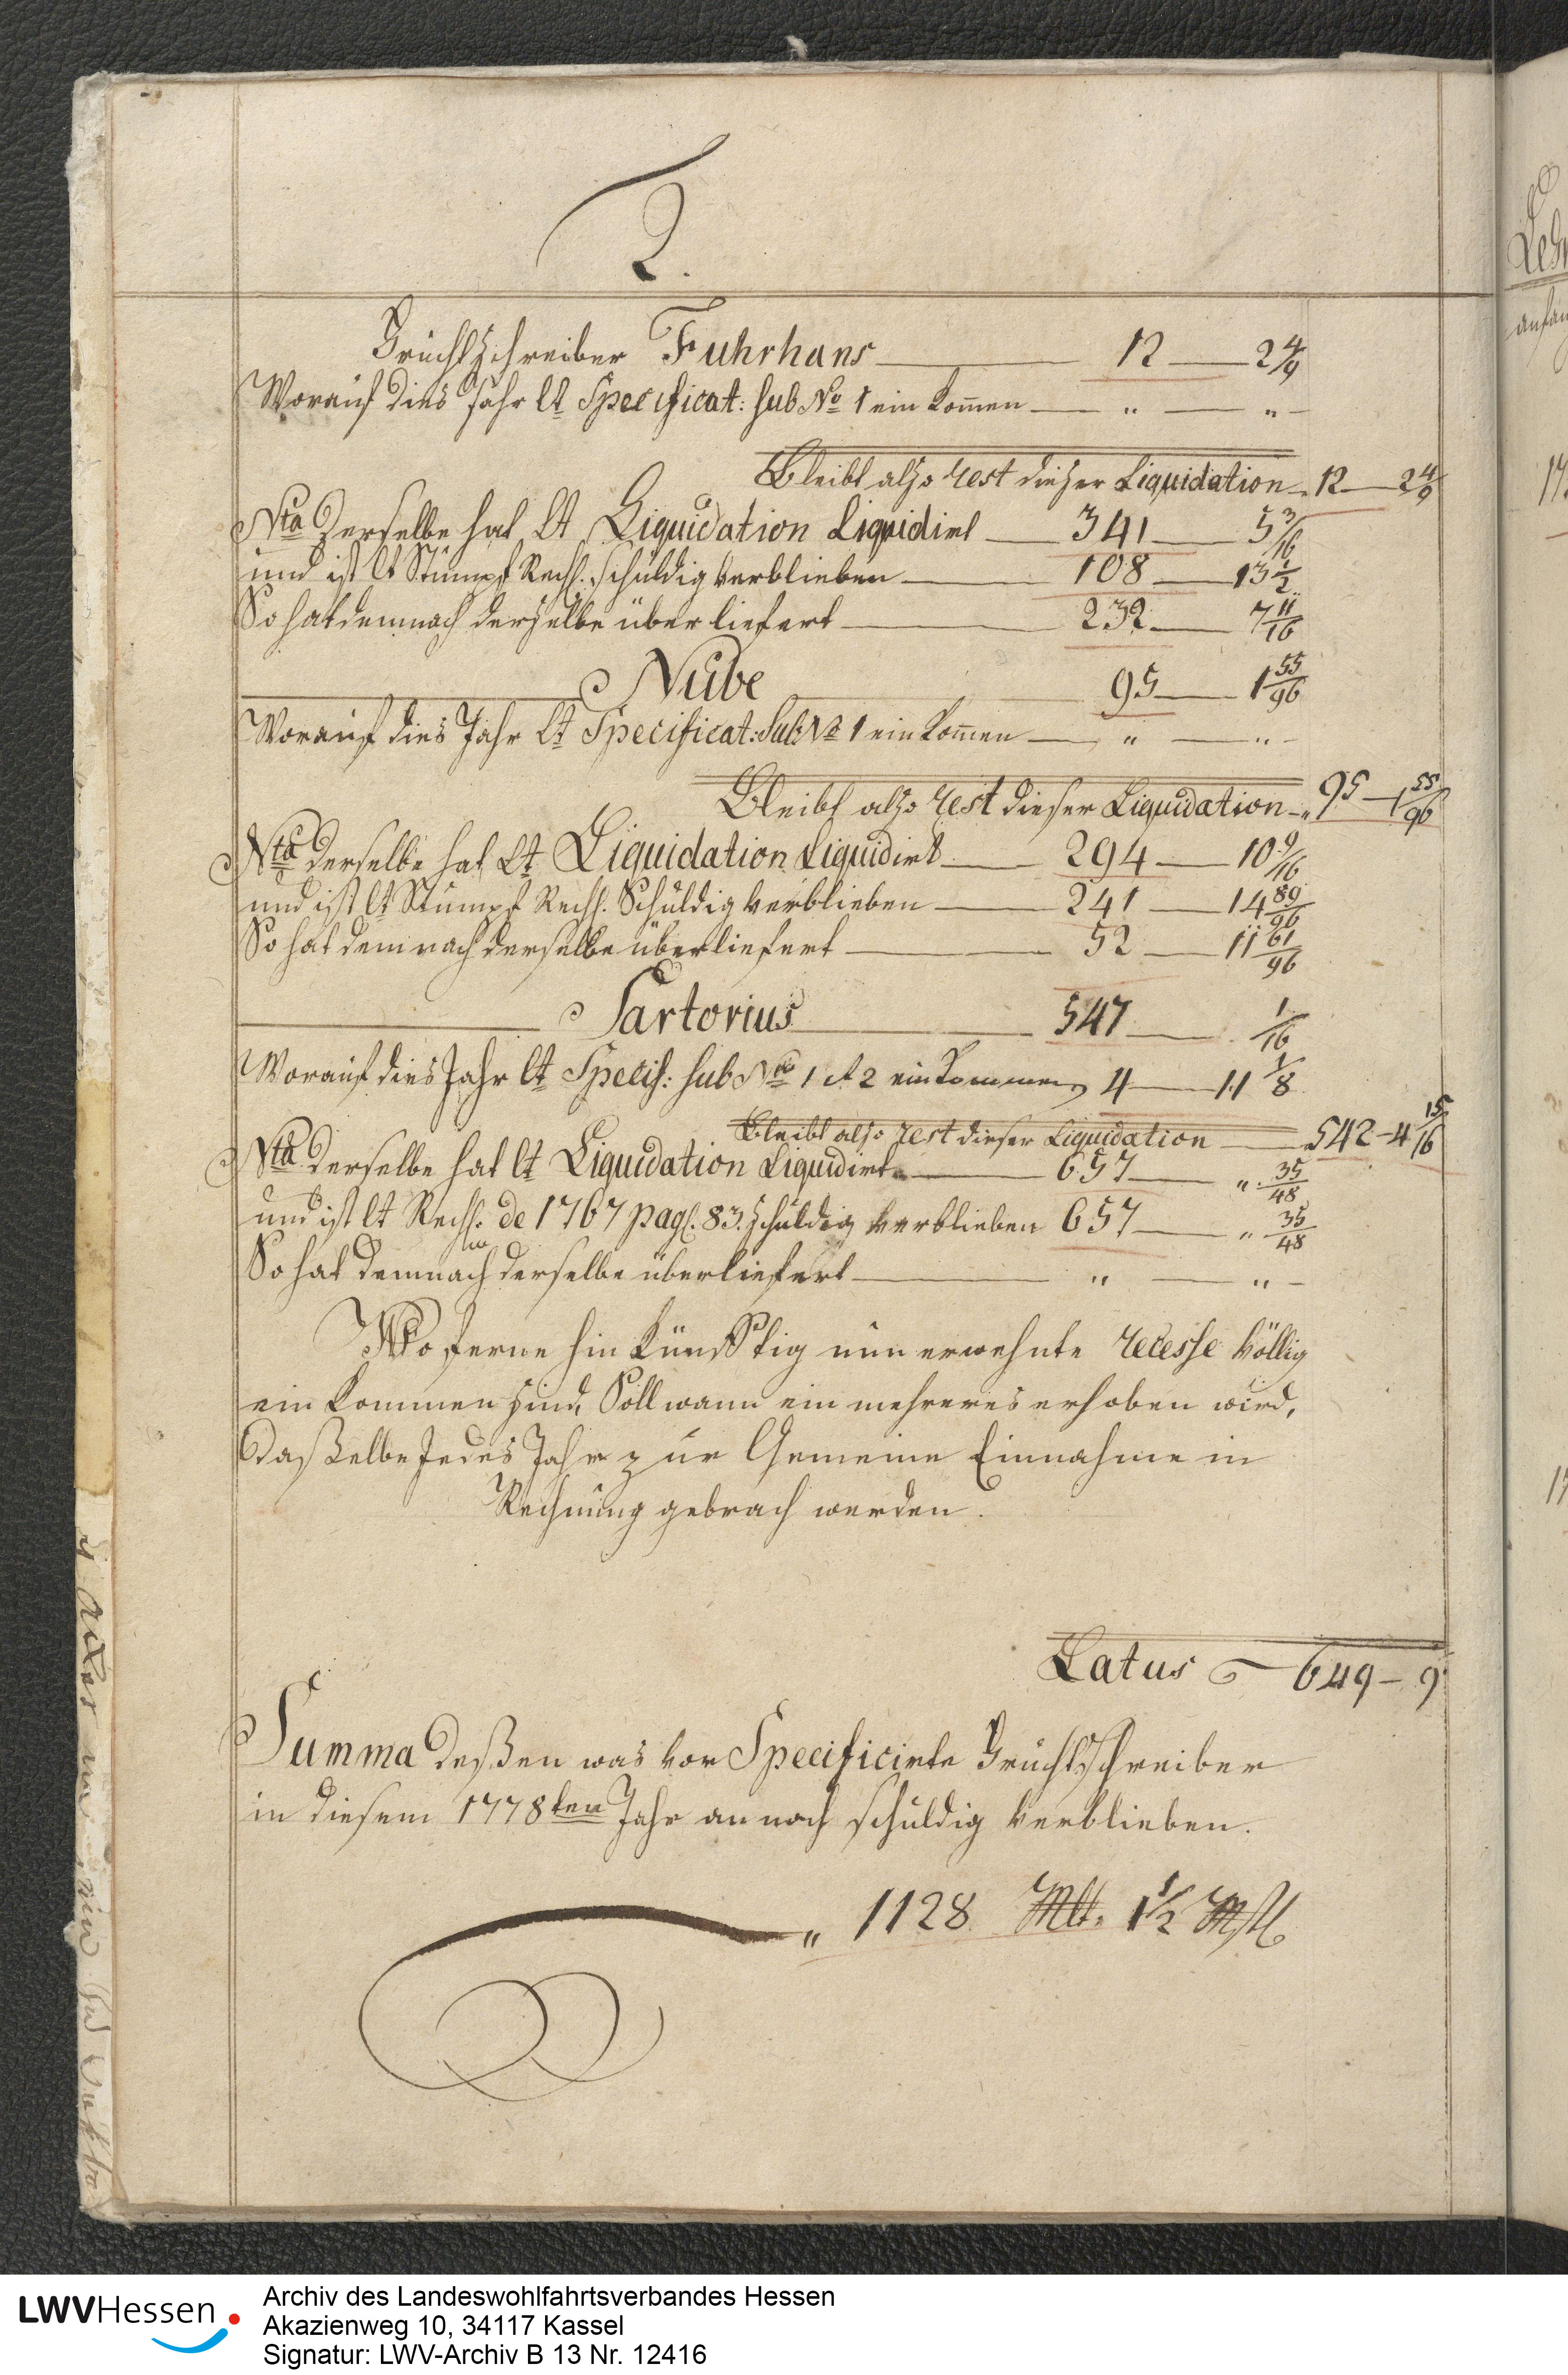 2.
Fruchtschreiber Fuhrhans — 12 — 2 4/9
Worauf dies Jahr lt Specificat: sub No 1 ein kom̄en — „ — „ —
Bleibt also rest dieser Liquidation „ 12 — 2 4/9
Nta Derselbe hat lt Liquidation Liquidirt — 341 — 5 3/16
und ist lt Stumpf Rech. schuldig verblieben — 108 — 13 1/2
So hat demnach derselbe über liefert — 232 — 7 11/16
Nübe — 95 — 1 55/96
Worauf dies Jahr lt Specificat: Sub: No 1 ein kom̄en — „ — „ —
Bleibt also rest dieser Liquidation „ 95 — 1 55/96
Nta Derselbe hat lt Liquidation Liquidirt — 294 — 10 9/16
und ist lt Stumpf Rech. Schuldig verblieben — 241 — 14 89/96
So hat demnach derselbe überliefert — 52 — 11 61/96
Sartorius — 547 — 1/16
Worauf dies Jahr lt Specif: sub No 1 et 2 einkommen 4 — 11 1/8
Bleibt also rest dieser Liquidation — 542 - 4 15/16
Nta Derselbe hat lt Liquidation Liquidirt — 657 — „ 35/48
und ist lt Rech. de 1767 pag. 83. schuldig verblieben 657 — „ 35/48
So hat demnach derselbe überliefert — „ — „ —
Wo ferne hin künftig nun erwehnte recesse völlig
ein kommen sind, Soll wann ein mehreres erhoben wird,
Daßelbe Jedes Jahr zur Gemeine Einnahme in
Rechnung gebrach werden.
Latus — 649 - 9
Summa deßen was vor Specificirte Fruchtschreiber
in diesem 1778ten Jahr an noch schuldig verblieben.
„ 1128 Mlt. 1 1/2 Mßl
LWVHessen
Archiv des Landeswohlfahrtsverbandes Hessen
Akazienweg 10, 34117 Kassel
Signatur: LWV-Archiv B 13 Nr. 12416